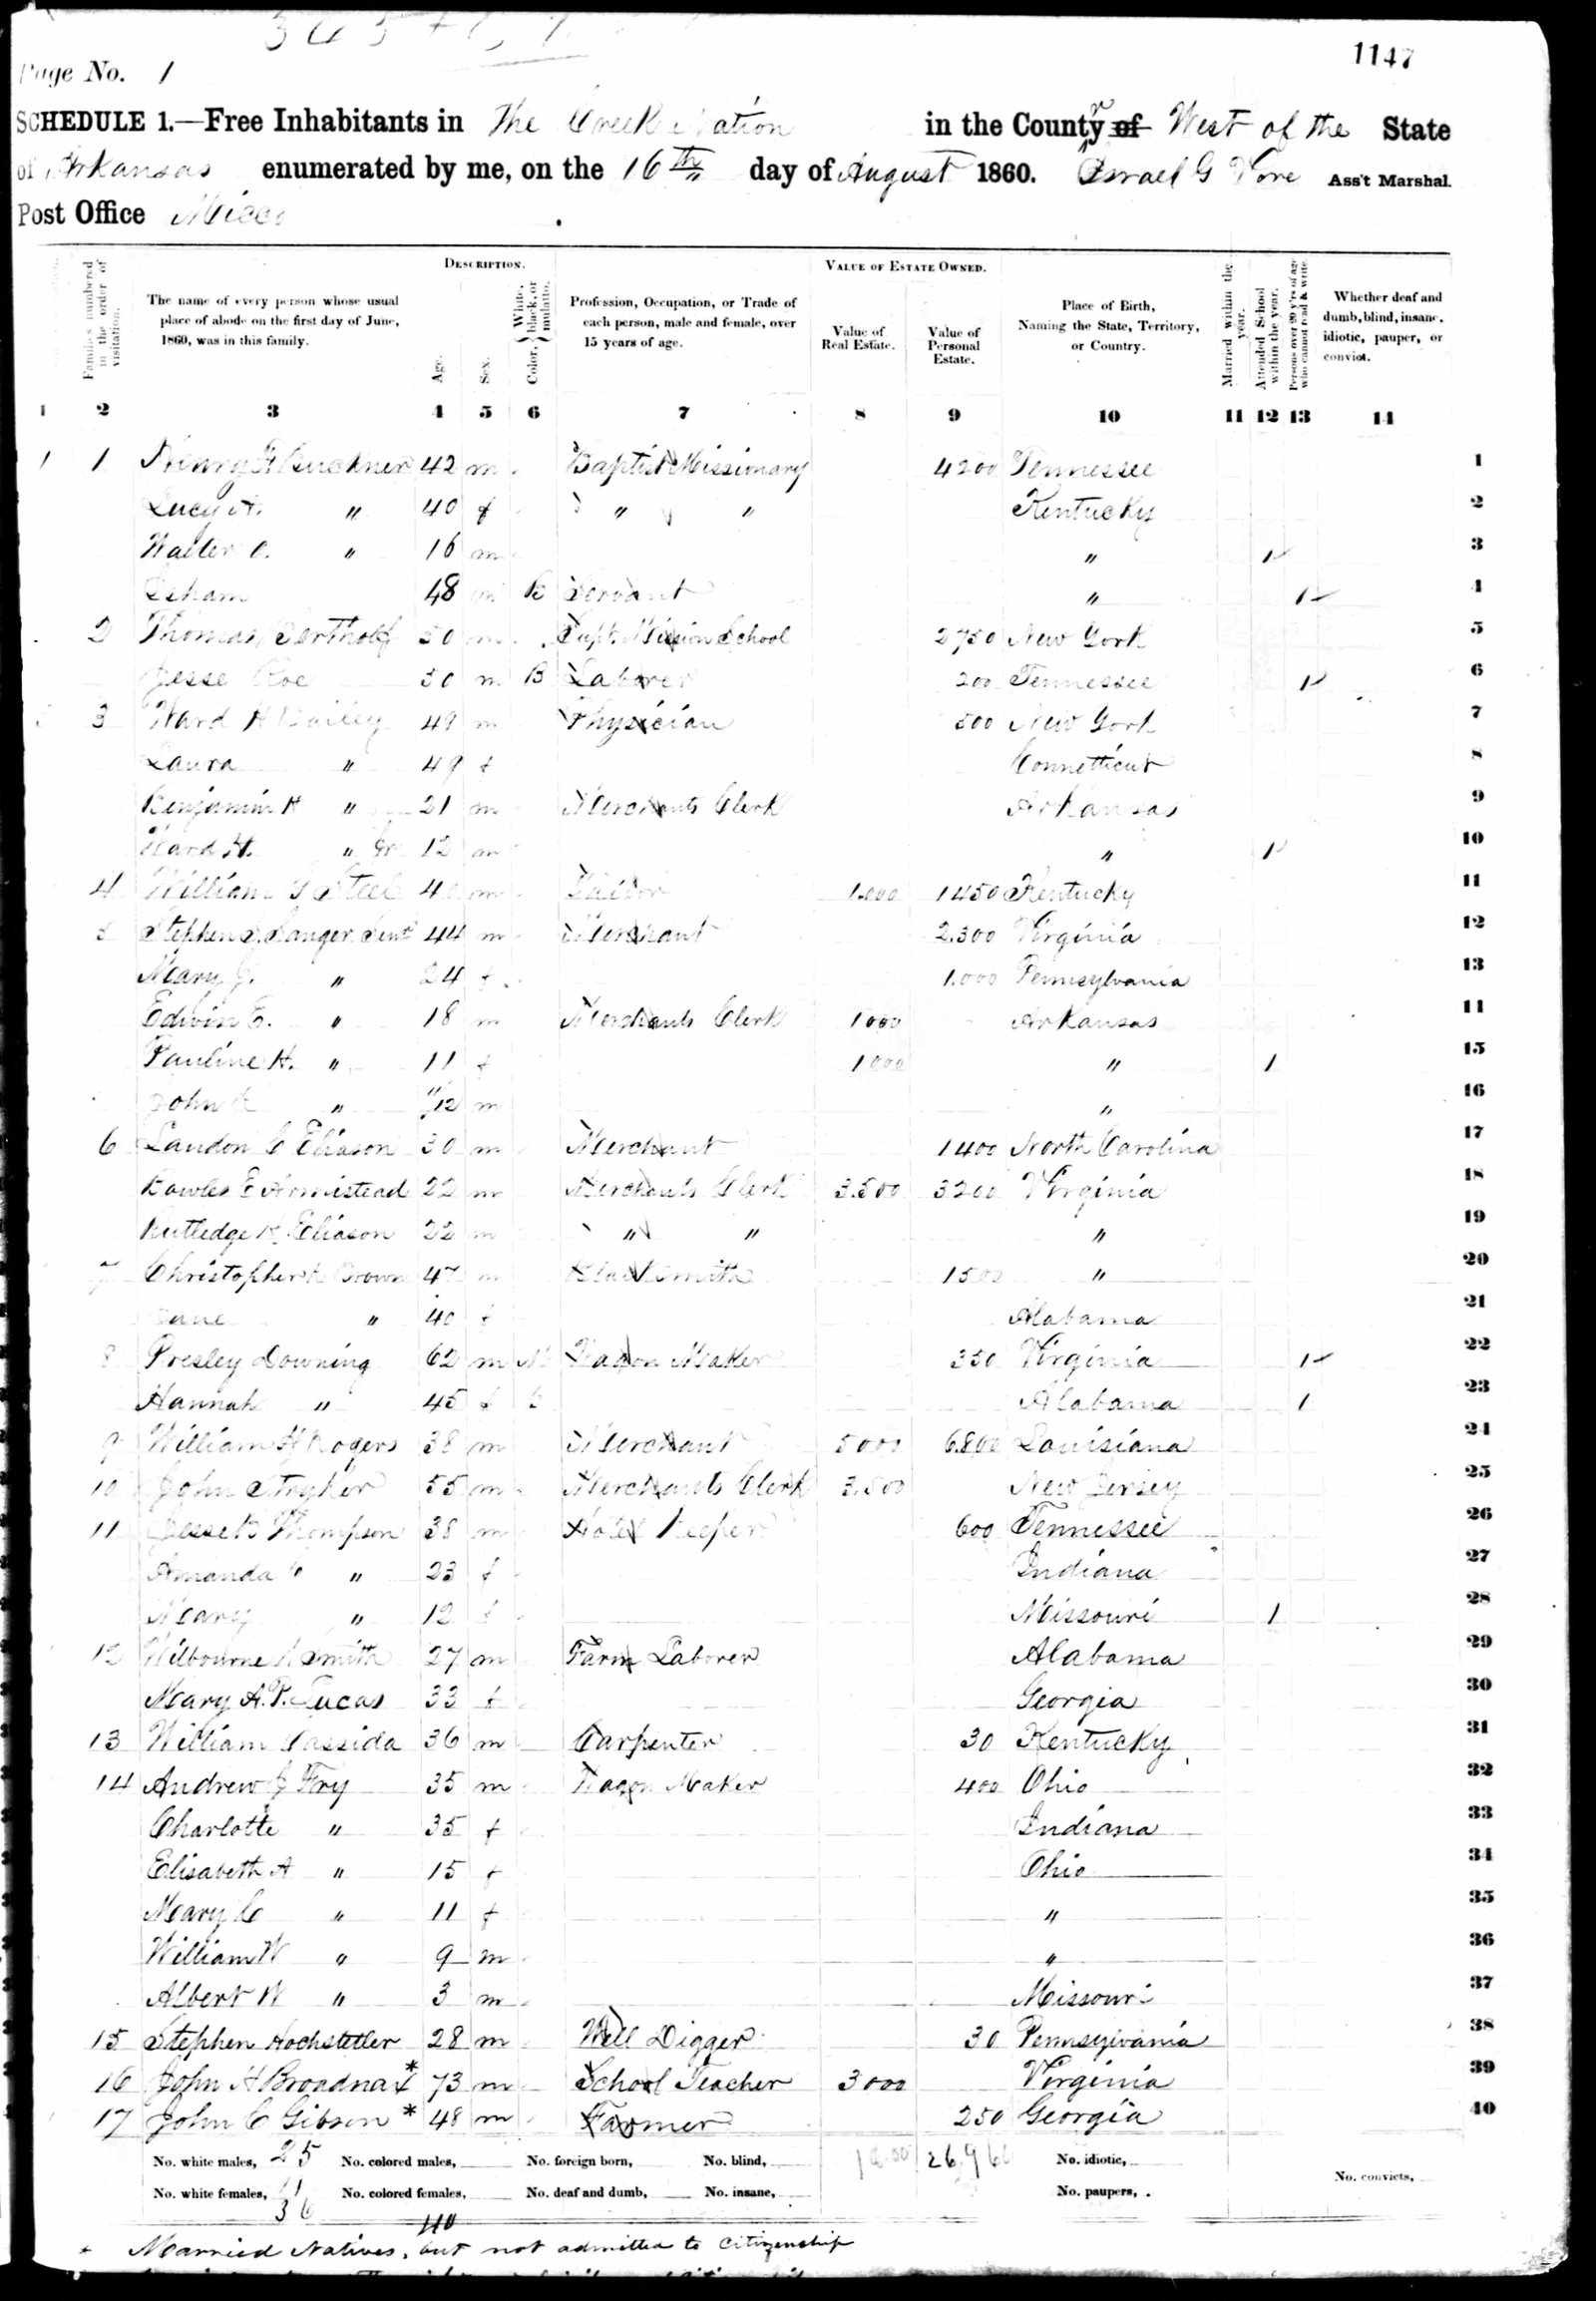 Page No. 1
1147
SCHEDULE 1.—Free Inhabitants in The Creek Nation in the County of West of the State
of Arkansas enumerated by me, on the 16th day of August 1860. Israel G Vore Ass't Marshal.
Post Office Micco
DESCRIPTION. VALUE OF ESTATE OWNED.
Families numbered in the order of visitation.
The name of every person whose usual place of abode on the first day of June, 1860, was in this family.
Age. Sex. Color, White, black, or mulatto.
Profession, Occupation, or Trade of each person, male and female, over 15 years of age.
Value of Real Estate. Value of Personal Estate.
Place of Birth, Naming the State, Territory, or Country.
Married within the year. Attended School within the year. Persons over 20 y'rs of age who cannot read & write
Whether deaf and dumb, blind, insane, idiotic, pauper, or convict.
1 2 3 4 5 6 7 8 9 10 11 12 13 14
1 1 Henry F Buckner 42 m Baptist Missionary 4200 Tennessee 1
Lucy A. " 40 f " " Kentucky 2
Walter C. " 16 m " 1 3
Isham 48 m B Servant " 1 4
2 Thomas Bertholf 50 m Supt. Mission School 2750 New York 5
Jesse Roe 50 m B Laborer 200 Tennessee 1 6
3 Ward H Bailey 49 m Physician 500 New York 7
Laura " 49 f Connetticut 8
Benjamin H " 21 m Merchants Clerk Arkansas 9
Ward H. " Jr 12 m " 1 10
4 William Steel m 1.000 1450 Kentucky 11
5 Stephen S. Sanger 44 m Merchant 2.300 Virginia 12
Mary J. " 24 f 1.000 Pennsylvania 13
Edwin E. " 18 m Merchants Clerk 1000 Arkansas 14
Pauline H. " 11 f 1000 " 1 15
John " /12 m " 16
6 Landon C Eliason 30 m Merchant 1400 North Carolina 17
Bowles E Armistead 22 m Merchants Clerk 3.500 3200 Virginia 18
Rutledge H. Eliason 22 m " " " 19
7 Christopher Brown 47 m Blacksmith 1500 " 20
Jane " 40 f Alabama 21
8 Presley Downing 62 m M Wagon Maker 350 Virginia 1 22
Hannah " 45 f Alabama 1 23
9 William H Rogers 38 m Merchant 5000 6.800 Louisiana 24
10 John Stryker 55 m Merchants Clerk 3.500 New Jersey 25
11 Jesse B Thompson 38 m Hotel Keeper 600 Tennessee 26
Amanda C " 23 f Indiana 27
Mary " 12 f Missouri 1 28
12 Wilbourne Smith 27 m Farm Laborer Alabama 29
Mary A. P. Lucas 33 f Georgia 30
13 William Cassida 36 m Carpenter 30 Kentucky 31
14 Andrew J Fry 35 m Wagon Maker 400 Ohio 32
Charlotte " 35 f Indiana 33
Elisabeth A " 15 f Ohio 34
Mary C " 11 f " 35
William W " 9 m " 36
Albert W " 3 m Missouri 37
15 Stephen Hochstetler 28 m Well Digger 30 Pennsylvania 38
16 John H Broadnax * 73 m School Teacher 3000 Virginia 39
17 John C Gibson * 48 m Farmer 250 Georgia 40
No. white males, 25 No. colored males, No. foreign born, No. blind, No. idiotic, No. convicts,
No. white females, 11 No. colored females, No. deaf and dumb, No. insane, No. paupers,
36
40
* Married Natives, but not admitted to citizenship